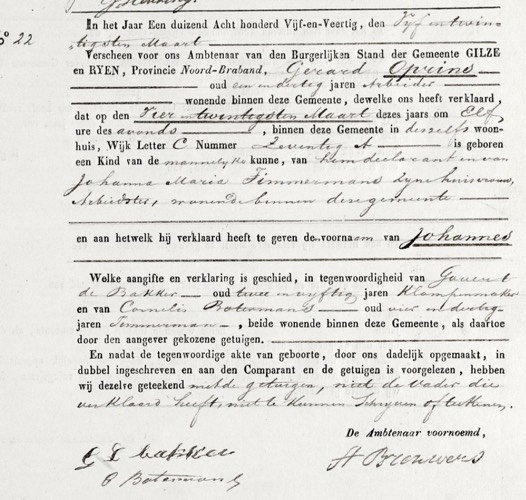 N° 22
In het Jaar Een duizend Acht honderd Vijf-en-Veertig, den Vyf en twin-
tigsten Maart
Verscheen voor ons Ambtenaar van den Burgerlijken Stand der Gemeente GILZE
en RYEN, Provincie Noord-Braband, Gerard Oprins
oud een en dertig jaren Arbeider
wonende binnen deze Gemeente, dewelke ons heeft verklaard,
dat op den Vier en twintigsten Maart dezes jaars om Elf
ure des avonds, binnen deze Gemeente in deszelfs woon-
huis, Wijk Letter C Nummer Zeventig A is geboren
een Kind van de mannelyke kunne, van hem declarant en van
Johanna Maria Timmermans zyne huisvrouw,
Arbeidster, wonende binnen deze gemeente
en aan hetwelk hij verklaard heeft te geven de voornaam van Johannes
Welke aangifte en verklaring is geschied, in tegenwoordigheid van Govert
de Bakker oud twee en vyftig jaren Klompenmaker
en van Cornelis Botermans oud vier en dertig
jaren Timmerman, beide wonende binnen deze Gemeente, als daartoe
door den aangever gekozene getuigen.
En nadat de tegenwoordige akte van geboorte, door ons dadelijk opgemaakt, in
dubbel ingeschreven en aan den Comparant en de getuigen is voorgelezen, hebben
wij dezelve geteekend met de getuigen, niet de vader die
verklaard heeft niet te kunnen schryven of teekenen.
De Ambtenaar voornoemd,
bakker
C Botermans
A Brouwers